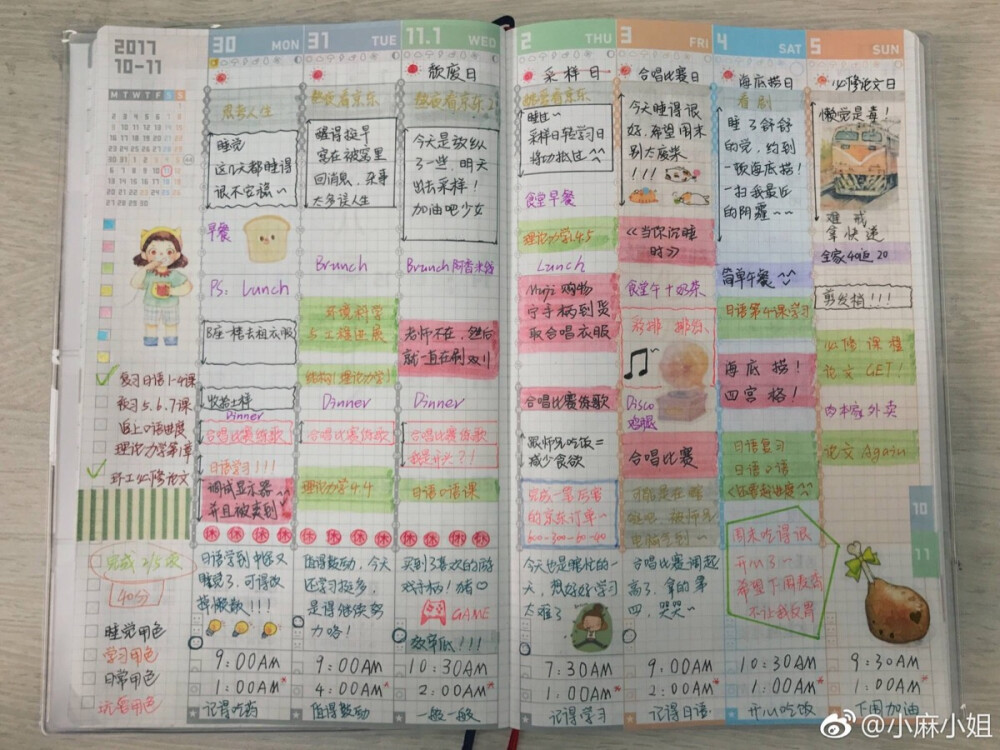 2017
10-11
M T W T F S S
复习日语1-4课
预习5.6.7课
追上口语进展
理论力学第1章
环工必修论文
完成 2/5 次
40分
睡觉用色
学习用色
日常用色
玩客用色
30 MON
思考人生
睡觉
这几天都睡得
很不安稳~
早餐
PS: Lunch
B座一楼去租衣服
收拾土样
Dinner
合唱比赛练歌
日语学习!!!
调试显示器
并且被卖到
日语学到中途又
睡觉了,可得改
掉懒散!!!
9:00AM
1:00AM
记得吃药
31 TUE
熬夜看京东
睡得挺早
窝在被窝里
回消息,杂事
太多误人生
Brunch
环境科学
与工程进展
Dinner
合唱比赛练歌
理论力学4.4
值得鼓励,今天
还学习挺多,
是得继续努
力咯!
9:00AM
4:00AM
值得鼓励
11.1 WED
颓废日
熬夜看京东2
今天是放纵
了一些,明天
出去采样!
加油吧少女
Brunch 阿香米线
老师不在,然后
就一直在刷双11
Dinner
合唱比赛练歌
就是开头?!
日语口语课
买到了喜欢的游
戏手柄!猪
GAME
效率低!!!
10:30AM
2:00AM
一般一般
2 THU
采样日
熬夜看京东
睡过~
采样日转学习日
将功抵过^^
食堂早餐
理论力学4.5
Lunch
Muji 购物
宁手柄到货
取合唱衣服
合唱比赛练歌
跟师兄吃饭=
减少食欲
完成一單厉害
的京东订单~
600-300-60-40
今天也是瞎忙的一
天,想好好学习
太难了~
7:30AM
1:00AM
记得学习
3 FRI
合唱比赛日
今天睡得很
好,希望周末
别太废柴
!!!
《当你沉睡
时》
食堂午+奶茶
彩排 排练
Disco
鸡腿
合唱比赛
合唱比赛调起
高了,拿的第
四,哭哭~
9:00AM
2:00AM
记得日语
4 SAT
海底捞日
看剧
睡了舒舒
的觉,约到
一顿海底捞!
一扫我最近
的阴霾~~
简单午餐^^
日语第4课学习
海底捞!
四宫格!
日语复习
日语口语
<还需赶进度^^
周末吃得很
开心了~
希望下周麦斋
不让我反胃
10:30AM
1:00AM
开心吃饭
5 SUN
必修论文日
懒觉是毒!
难戒
拿快递
全家40返20
剪发梢!!!
必修课程
论文 GET!
肉本家外卖
论文 Again
9:30AM
1:00AM
下周加油
10
11
@小麻小姐